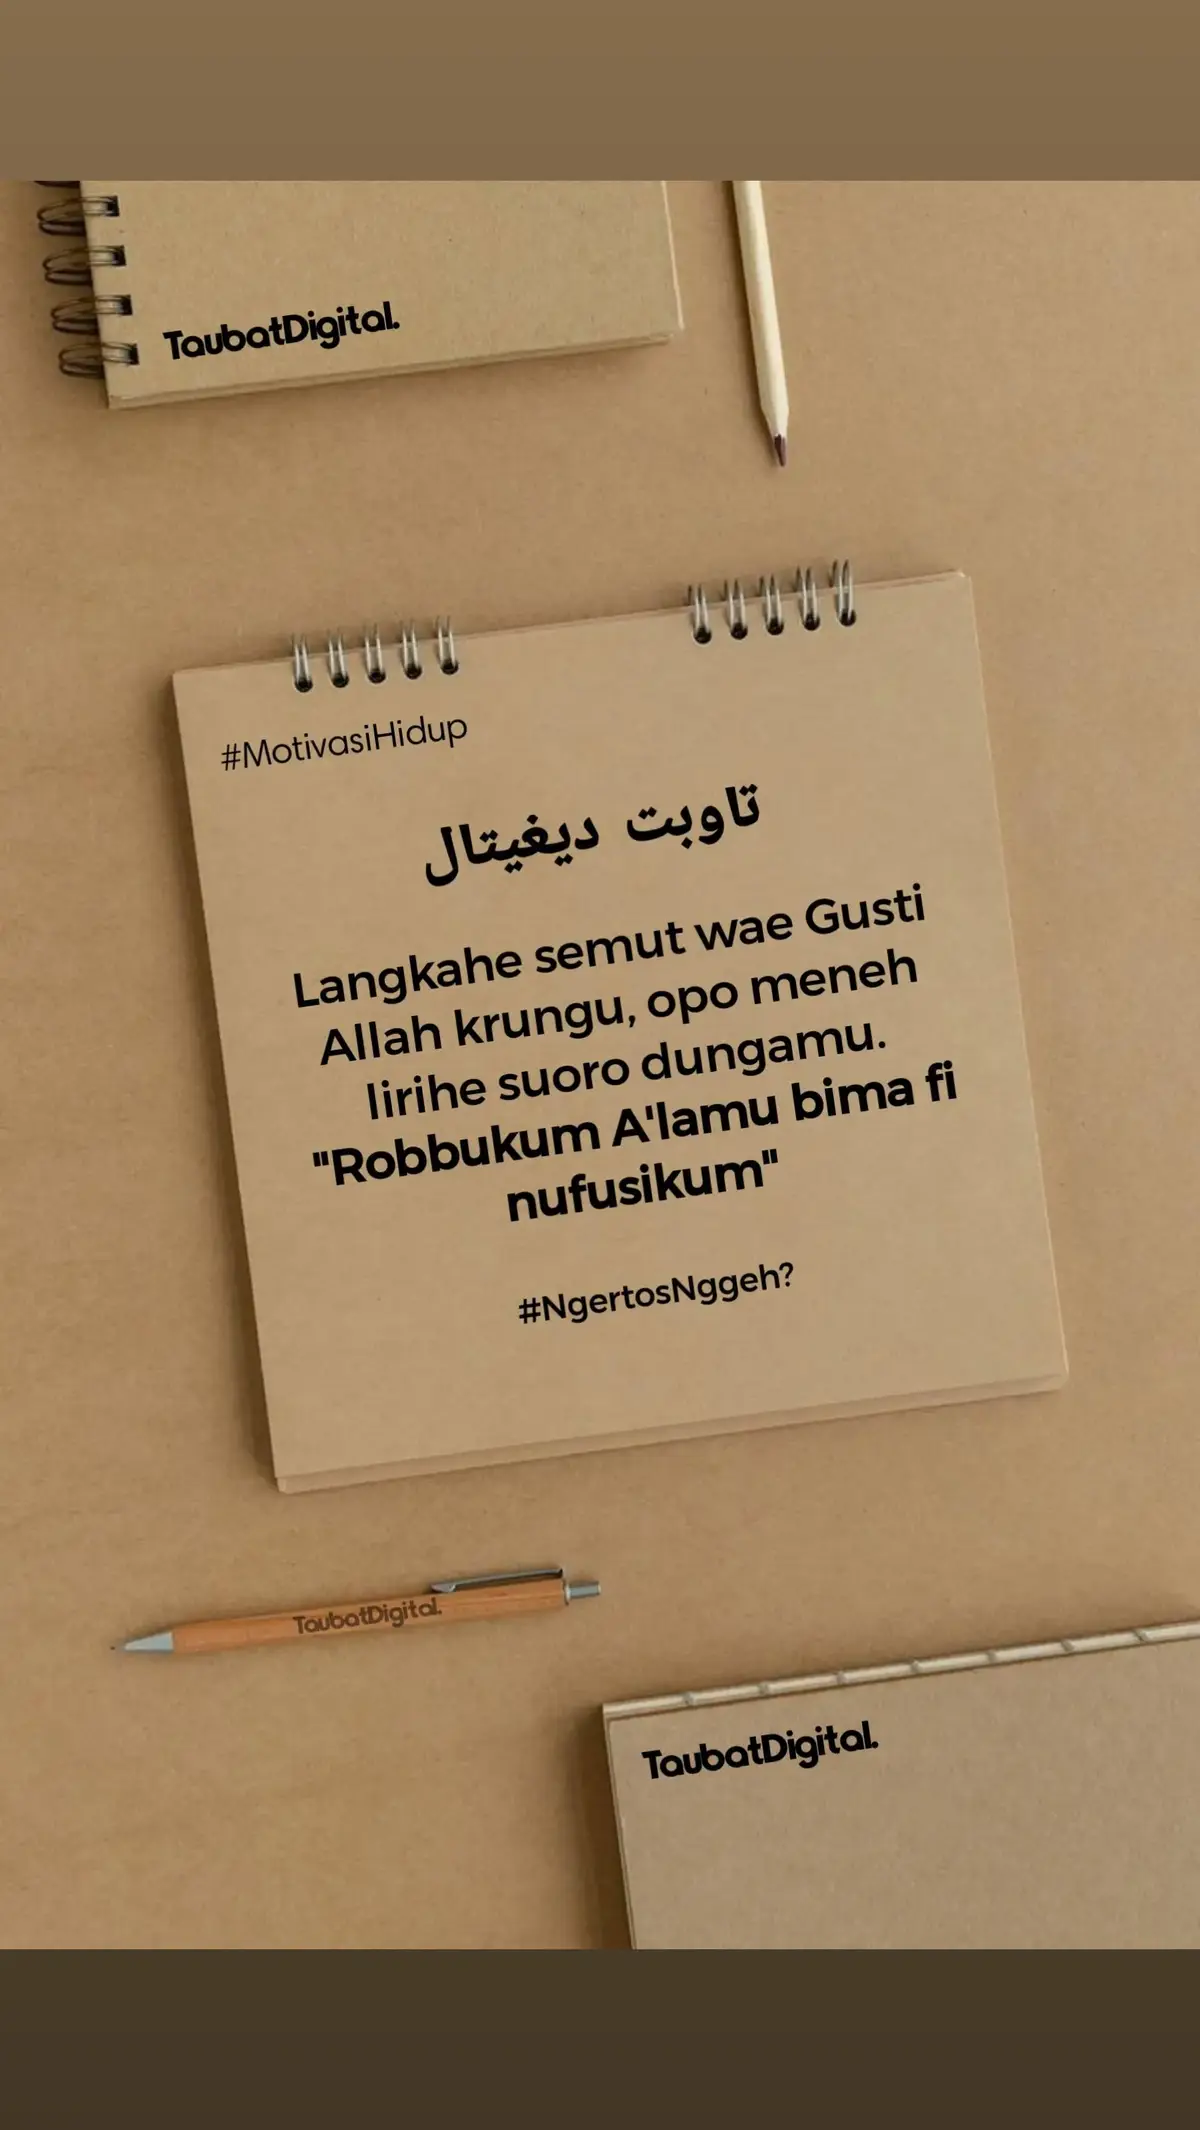 TaubatDigital.
#MotivasiHidup
تاوبت ديغيتال
Langkahe semut wae Gusti
Allah krungu, opo meneh
lirihe suoro dungamu.
"Robbukum A'lamu bima fi
nufusikum"
#NgertosNggeh?
TaubatDigital.
TaubatDigital.